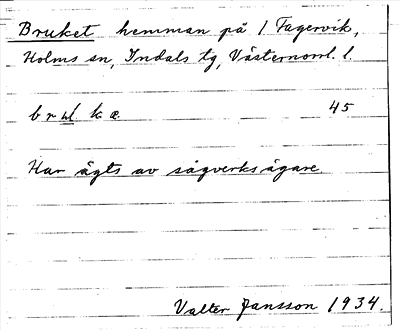 Bruket hemman på 1 Fagervik,
Holms sn, Indals tg, Västernorrl. l.
45
Har ägts av sågverksägare.
Valter Jansson 1934.